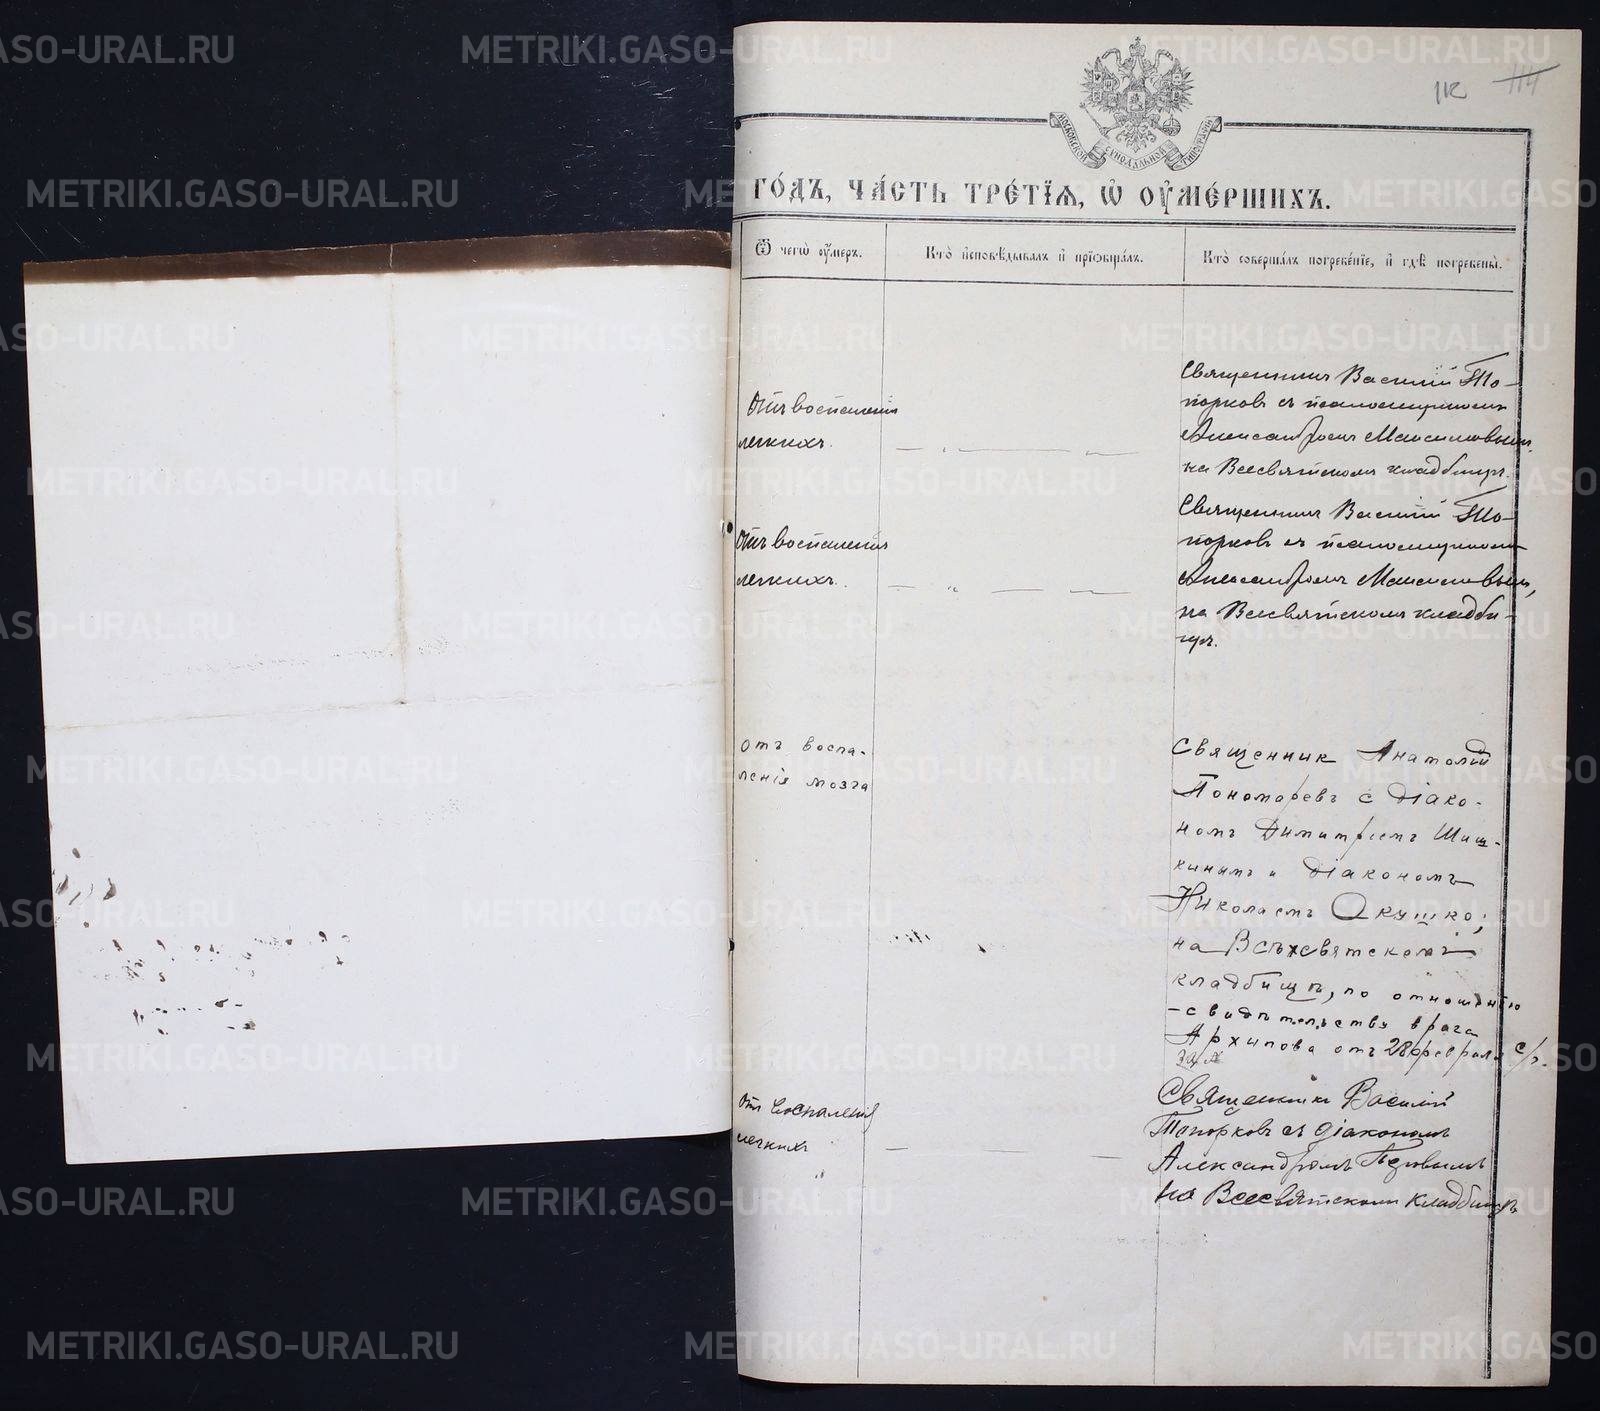 METRIKI.GASO-URAL.RU
112 114
МОСКОВСКОЙ СѴНОДАЛЬНОЙ ТИПОГРАФІИ
ГО́ДЪ, ЧА́СТЬ ТРЕ́ТЇѦ, Ѡ҆ ОУ҆МЕ́РШИХЪ.
Ѿ чегѡ̀ оу҆́меръ.
Кто̀ и҆сповѣ́дывалъ и҆ прїѡбща́лъ.
Кто̀ соверша́лъ погребе́нїе, и҆ гдѣ̀ погребены̀.
Отъ воспаленія
легкихъ.
Священникъ Василій То-
порковъ съ псаломщикомъ
Александромъ Максимовымъ,
на Всесвятскомъ кладбищѣ.
Отъ воспаленія
легкихъ.
Священникъ Василій То-
порковъ съ псаломщикомъ
Александромъ Максимовымъ,
на Всесвятскомъ кладби-
щѣ.
отъ воспа-
ленія мозга
Священник Анатолій
Пономаревъ с діако-
номъ Димитріемъ Шиш-
кинымъ и діакономъ
Николаемъ Окушко;
на Всѣхсвятскомъ
кладбищѣ, по отношенію
-свидѣтельству врача
Архипова отъ 28 февраля с/г.
Священникъ Василій
Топорковъ съ діакономъ
Александромъ
на Всесвятскомъ кладбищѣ
отъ воспаленія
легкихъ